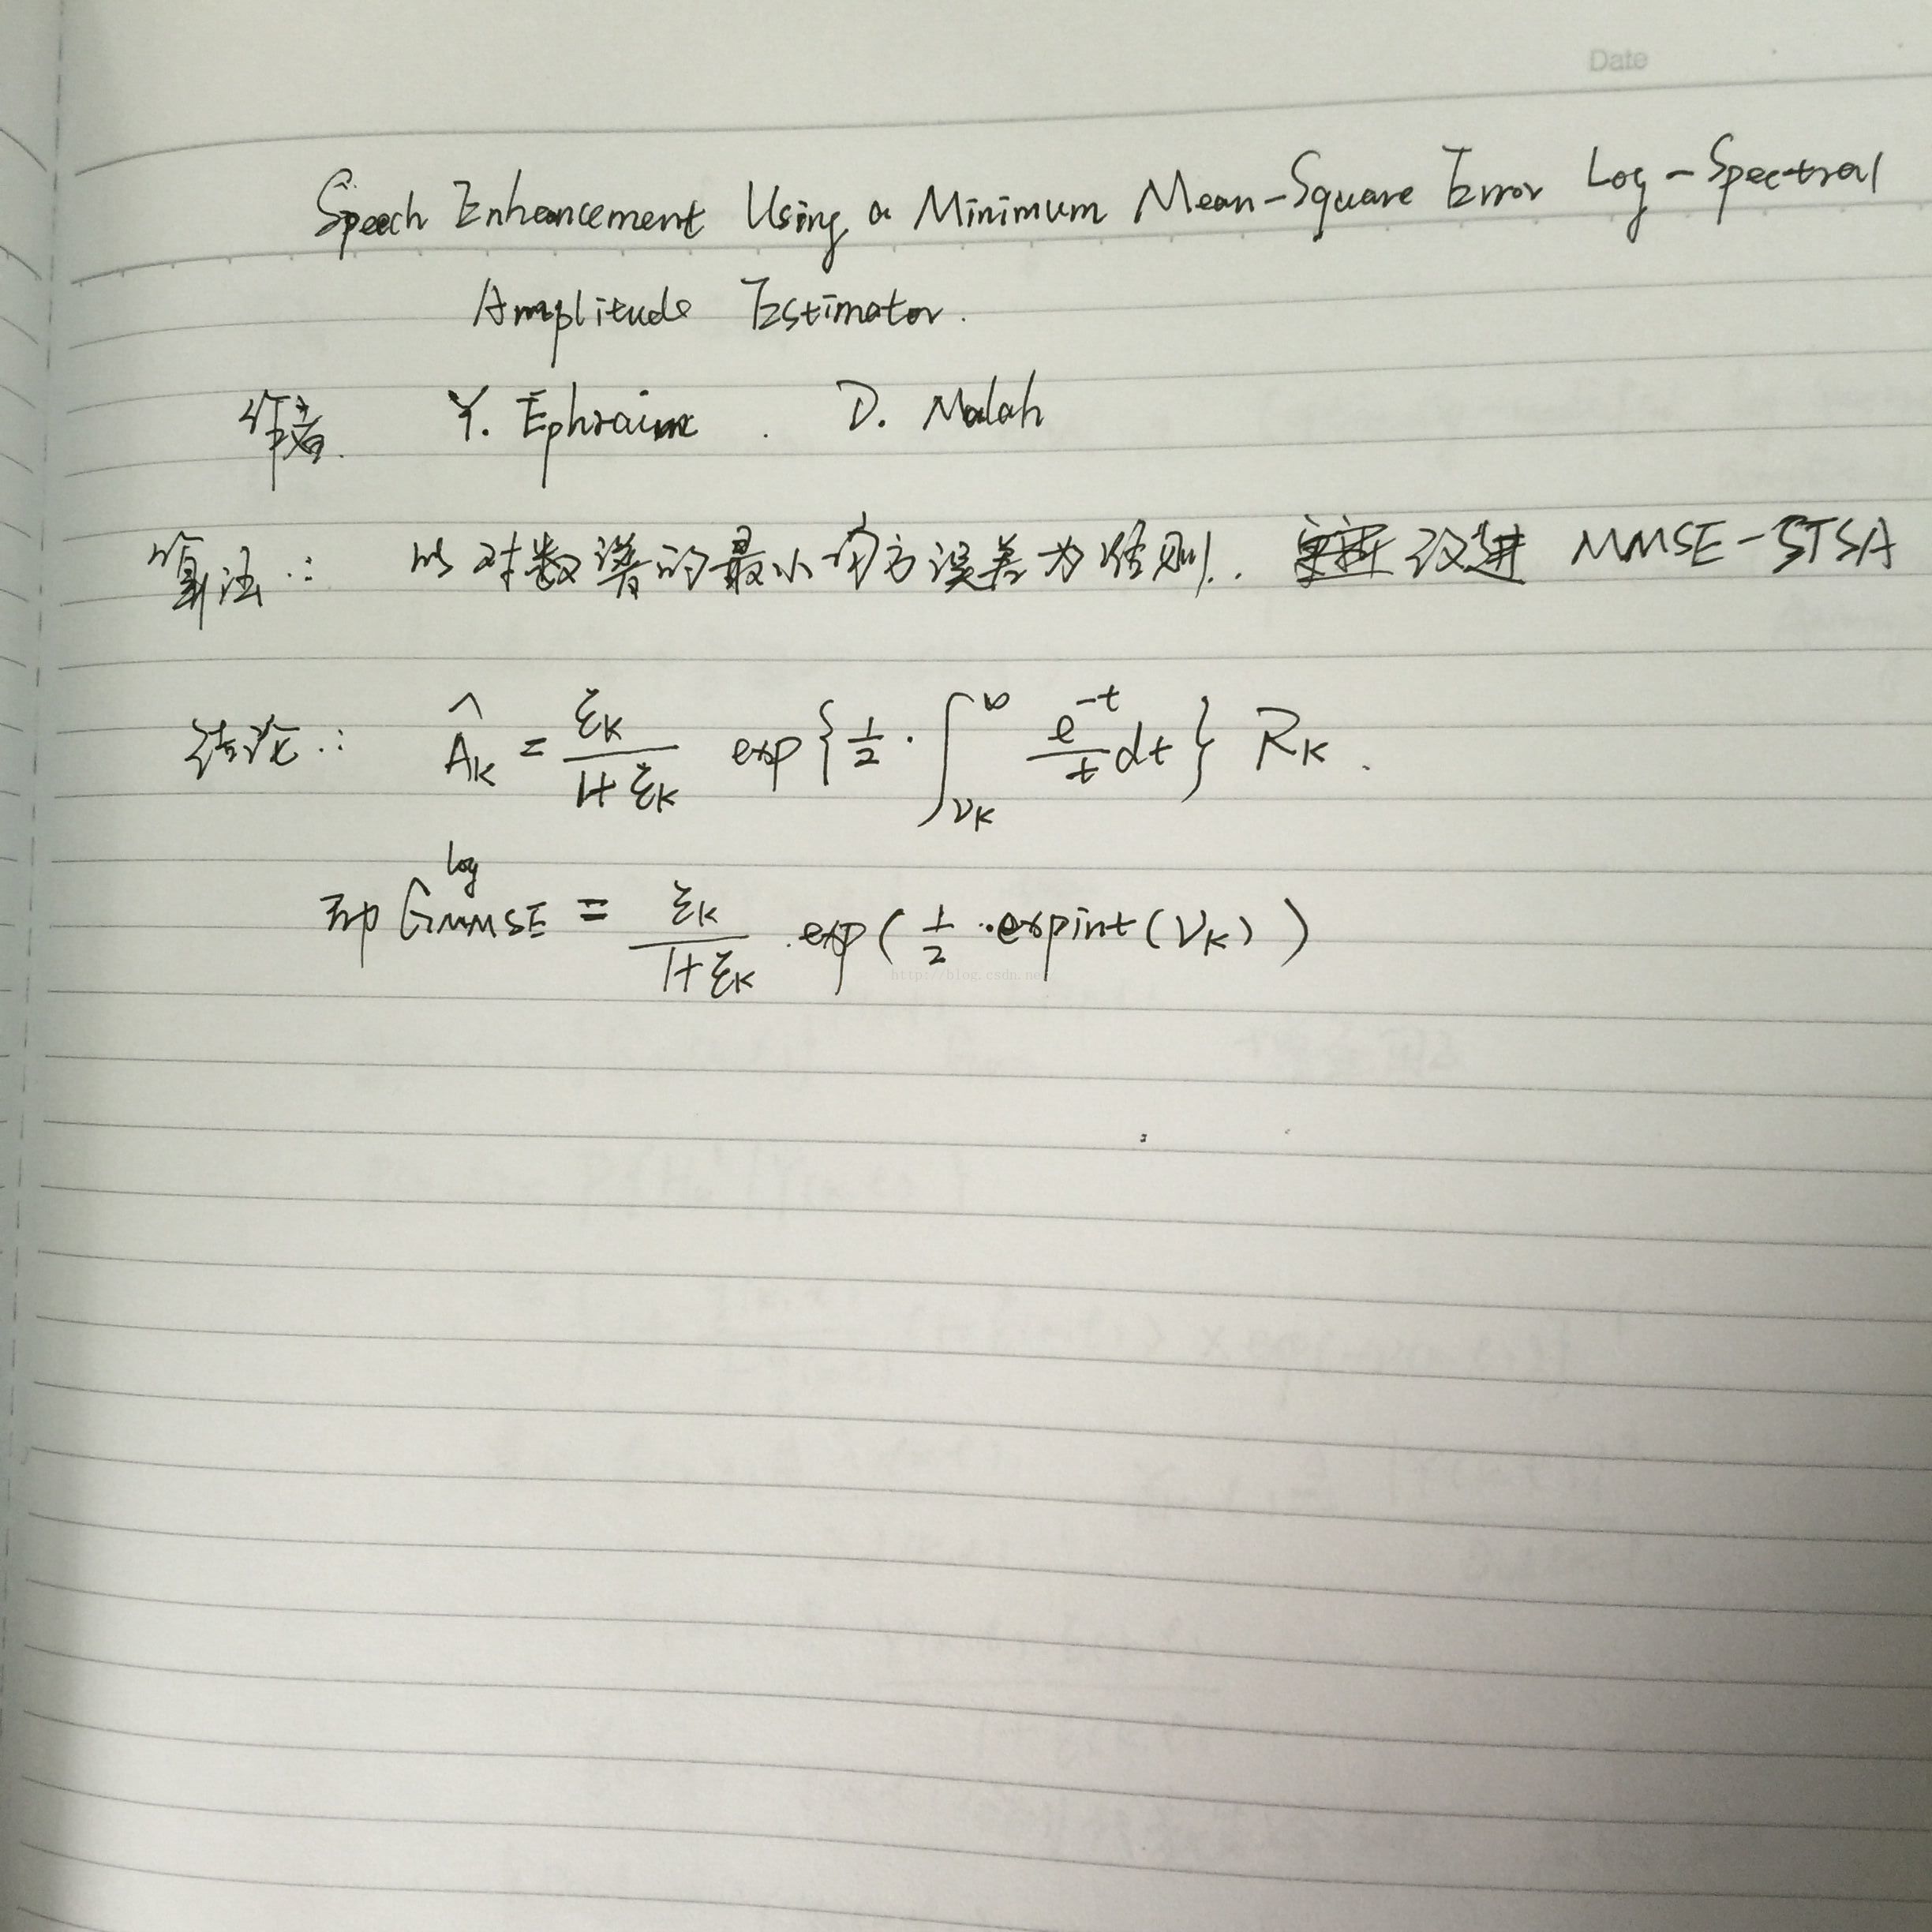 Date
Speech Enhancement Using a Minimum Mean-Square Error Log-Spectral
Amplitude Estimator.
作者. Y. Ephraim . D. Malah
算法: 以对数谱的最小均方误差为准则. 改进 MMSE-STSA
结论: \hat{A}_K = \frac{ξ_K}{1+ξ_K} exp{\frac{1}{2}·∫_{ν_K}^{∞} \frac{e^{-t}}{t}dt} R_K.
即 G_{MMSE}^{log} = \frac{ξ_K}{1+ξ_K}·exp(\frac{1}{2}·expint(ν_K))
http://blog.csdn.net/